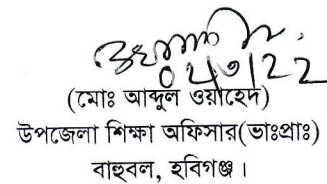 (মোঃ আব্দুল ওয়াহেদ)
উপজেলা শিক্ষা অফিসার(ভাঃপ্রাঃ)
বাহুবল, হবিগঞ্জ।